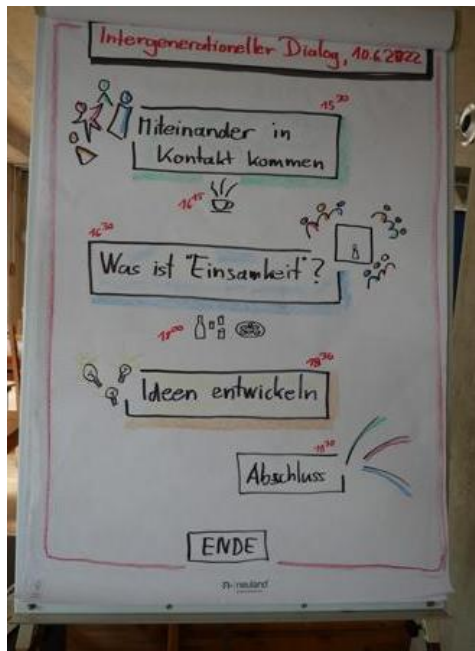 Intergenerationeller Dialog, 10.6.2022
15³⁰
Miteinander in
Kontakt kommen
16¹⁵
16³⁰
Was ist "Einsamkeit"?
18⁰⁰
18³⁰
Ideen entwickeln
Abschluss
ENDE
neuland